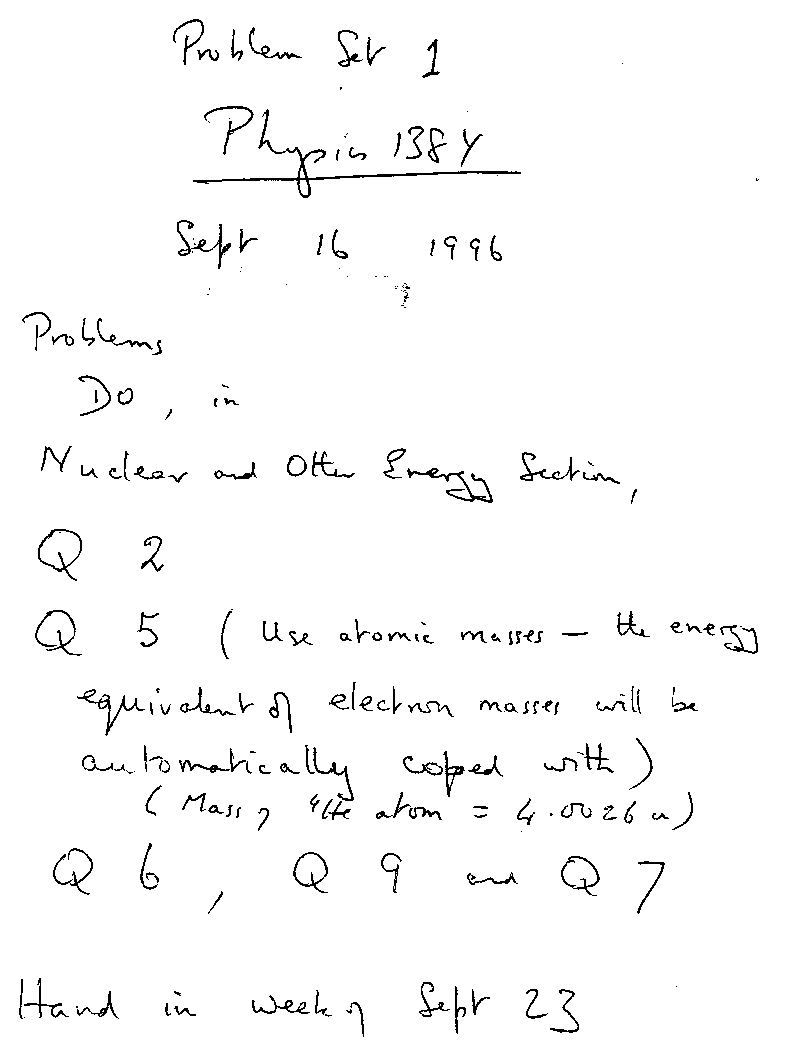 Problem Set 1
Physics 138Y
Sept 16 1996
Problems
Do, in
Nuclear and Other Energy Section,
Q 2
Q 5 (Use atomic masses – the energy
equivalent of electron masses will be
automatically coped with)
(Mass of ⁴He atom = 4.0026 u)
Q 6, Q 9 and Q 7
Hand in week of Sept 23